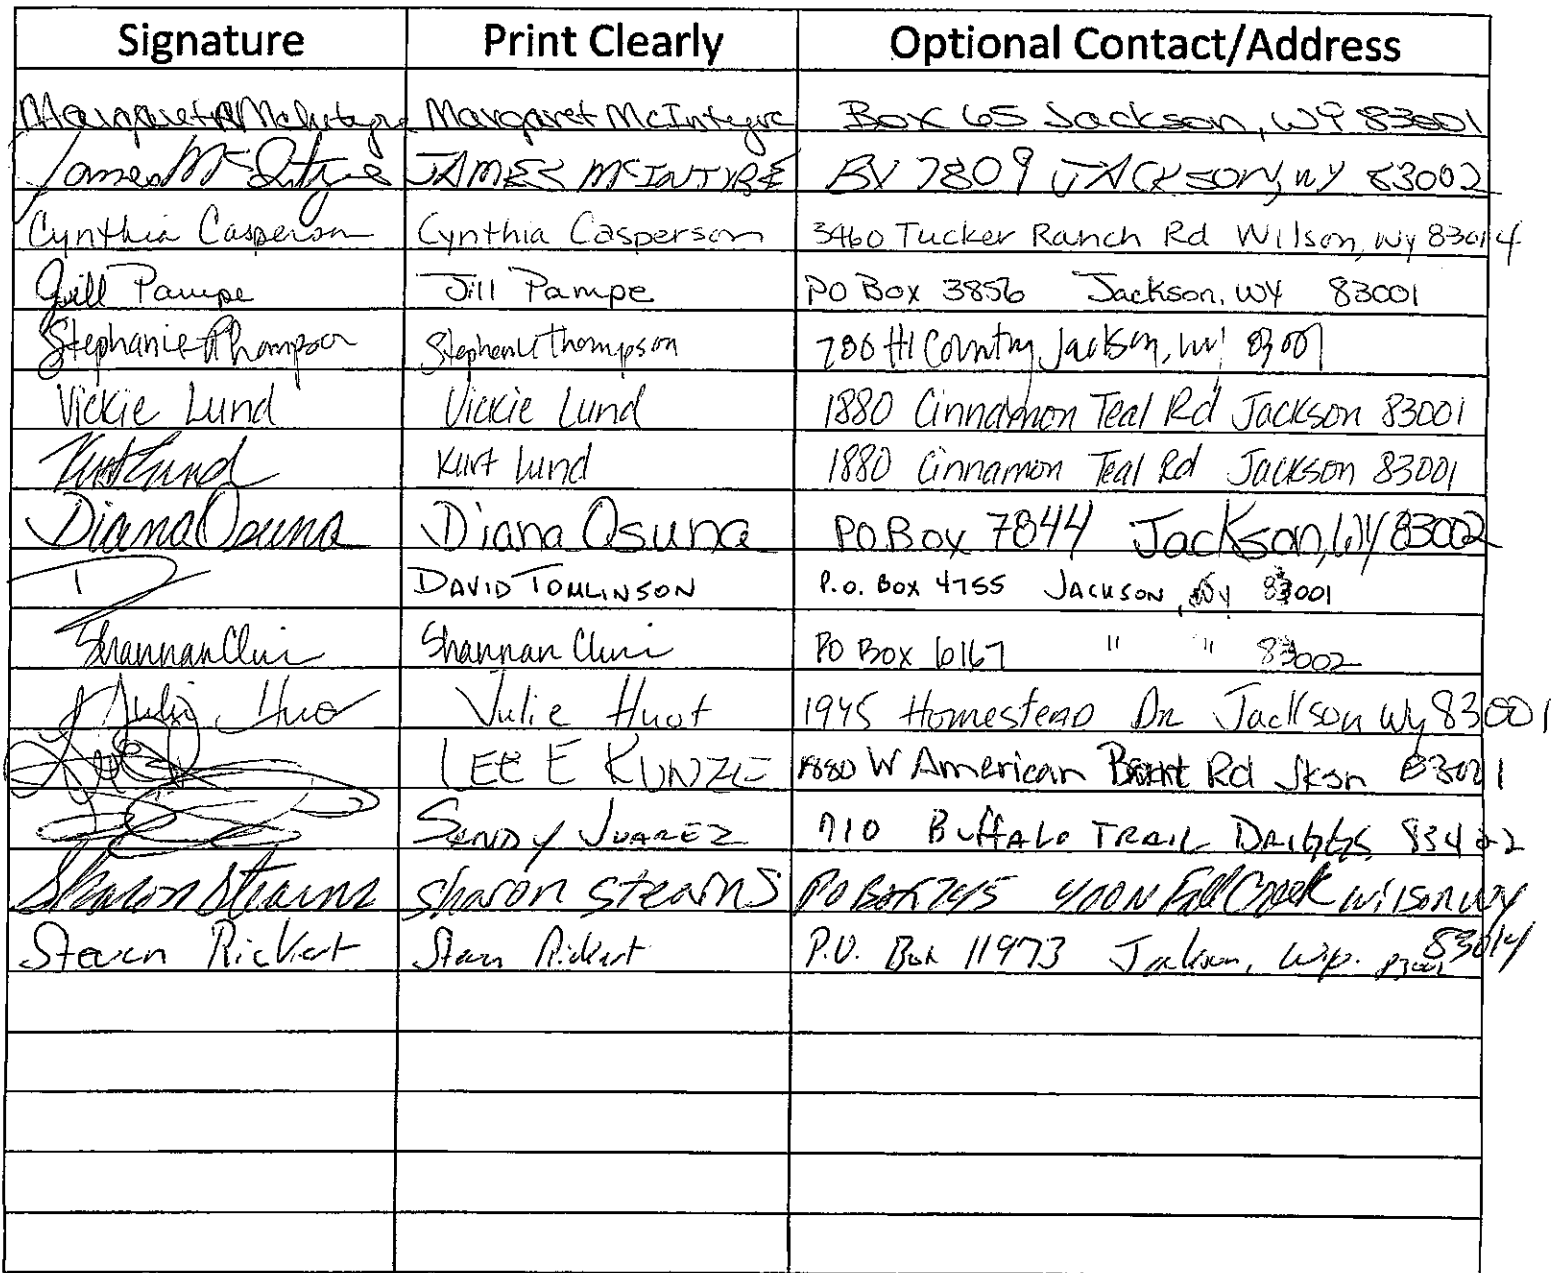 Signature Print Clearly Optional Contact/Address
Margaret McIntyre Margaret McIntyre Box 65 Jackson, WY 83001
James McIntyre JAMES McINTYRE BX 7809 JACKSON, WY 83002
Cynthia Casperson Cynthia Casperson 3460 Tucker Ranch Rd Wilson, Wy 83014
Jill Pampe Jill Pampe PO Box 3856 Jackson, WY 83001
Stephanie Thompson Stephanie Thompson HI Country Jackson, WY 83001
Vickie Lund Vickie Lund 1880 Cinnamon Teal Rd Jackson 83001
Kurt Lund Kurt Lund 1880 Cinnamon Teal Rd Jackson 83001
Diana Osuna Diana Osuna PO Box 7844 Jackson, WY 83002
DAVID TOMLINSON P.O. Box 4755 JACKSON, WY 83001
Shannan Shannan PO Box 6167 " " 83002
Julie Huot Julie Huot 1945 Homestead Dr Jackson Wy 83001
LEE E KUNZE 1880 W American Rd Jksn 83001
SENDY JUAREZ 710 Buffalo TRAIL DRIGGS 83422
Sharon Stearns Sharon Stearns PO Box 745 400 N Fall Creek Wilson WY
83014
Steven Rickert Steven Rickert P.O. Box 11973 Jackson, Wyo. 83002